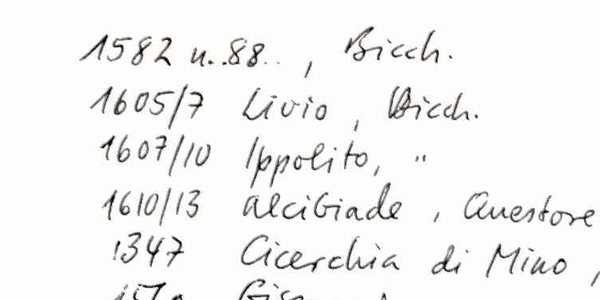 1582 u. 88. , Bicch.
1605/7 Livio , Bicch.
1607/10 Ippolito, "
1610/13 Alcibiade , Questore
1347 Cicerchia di Mino ,